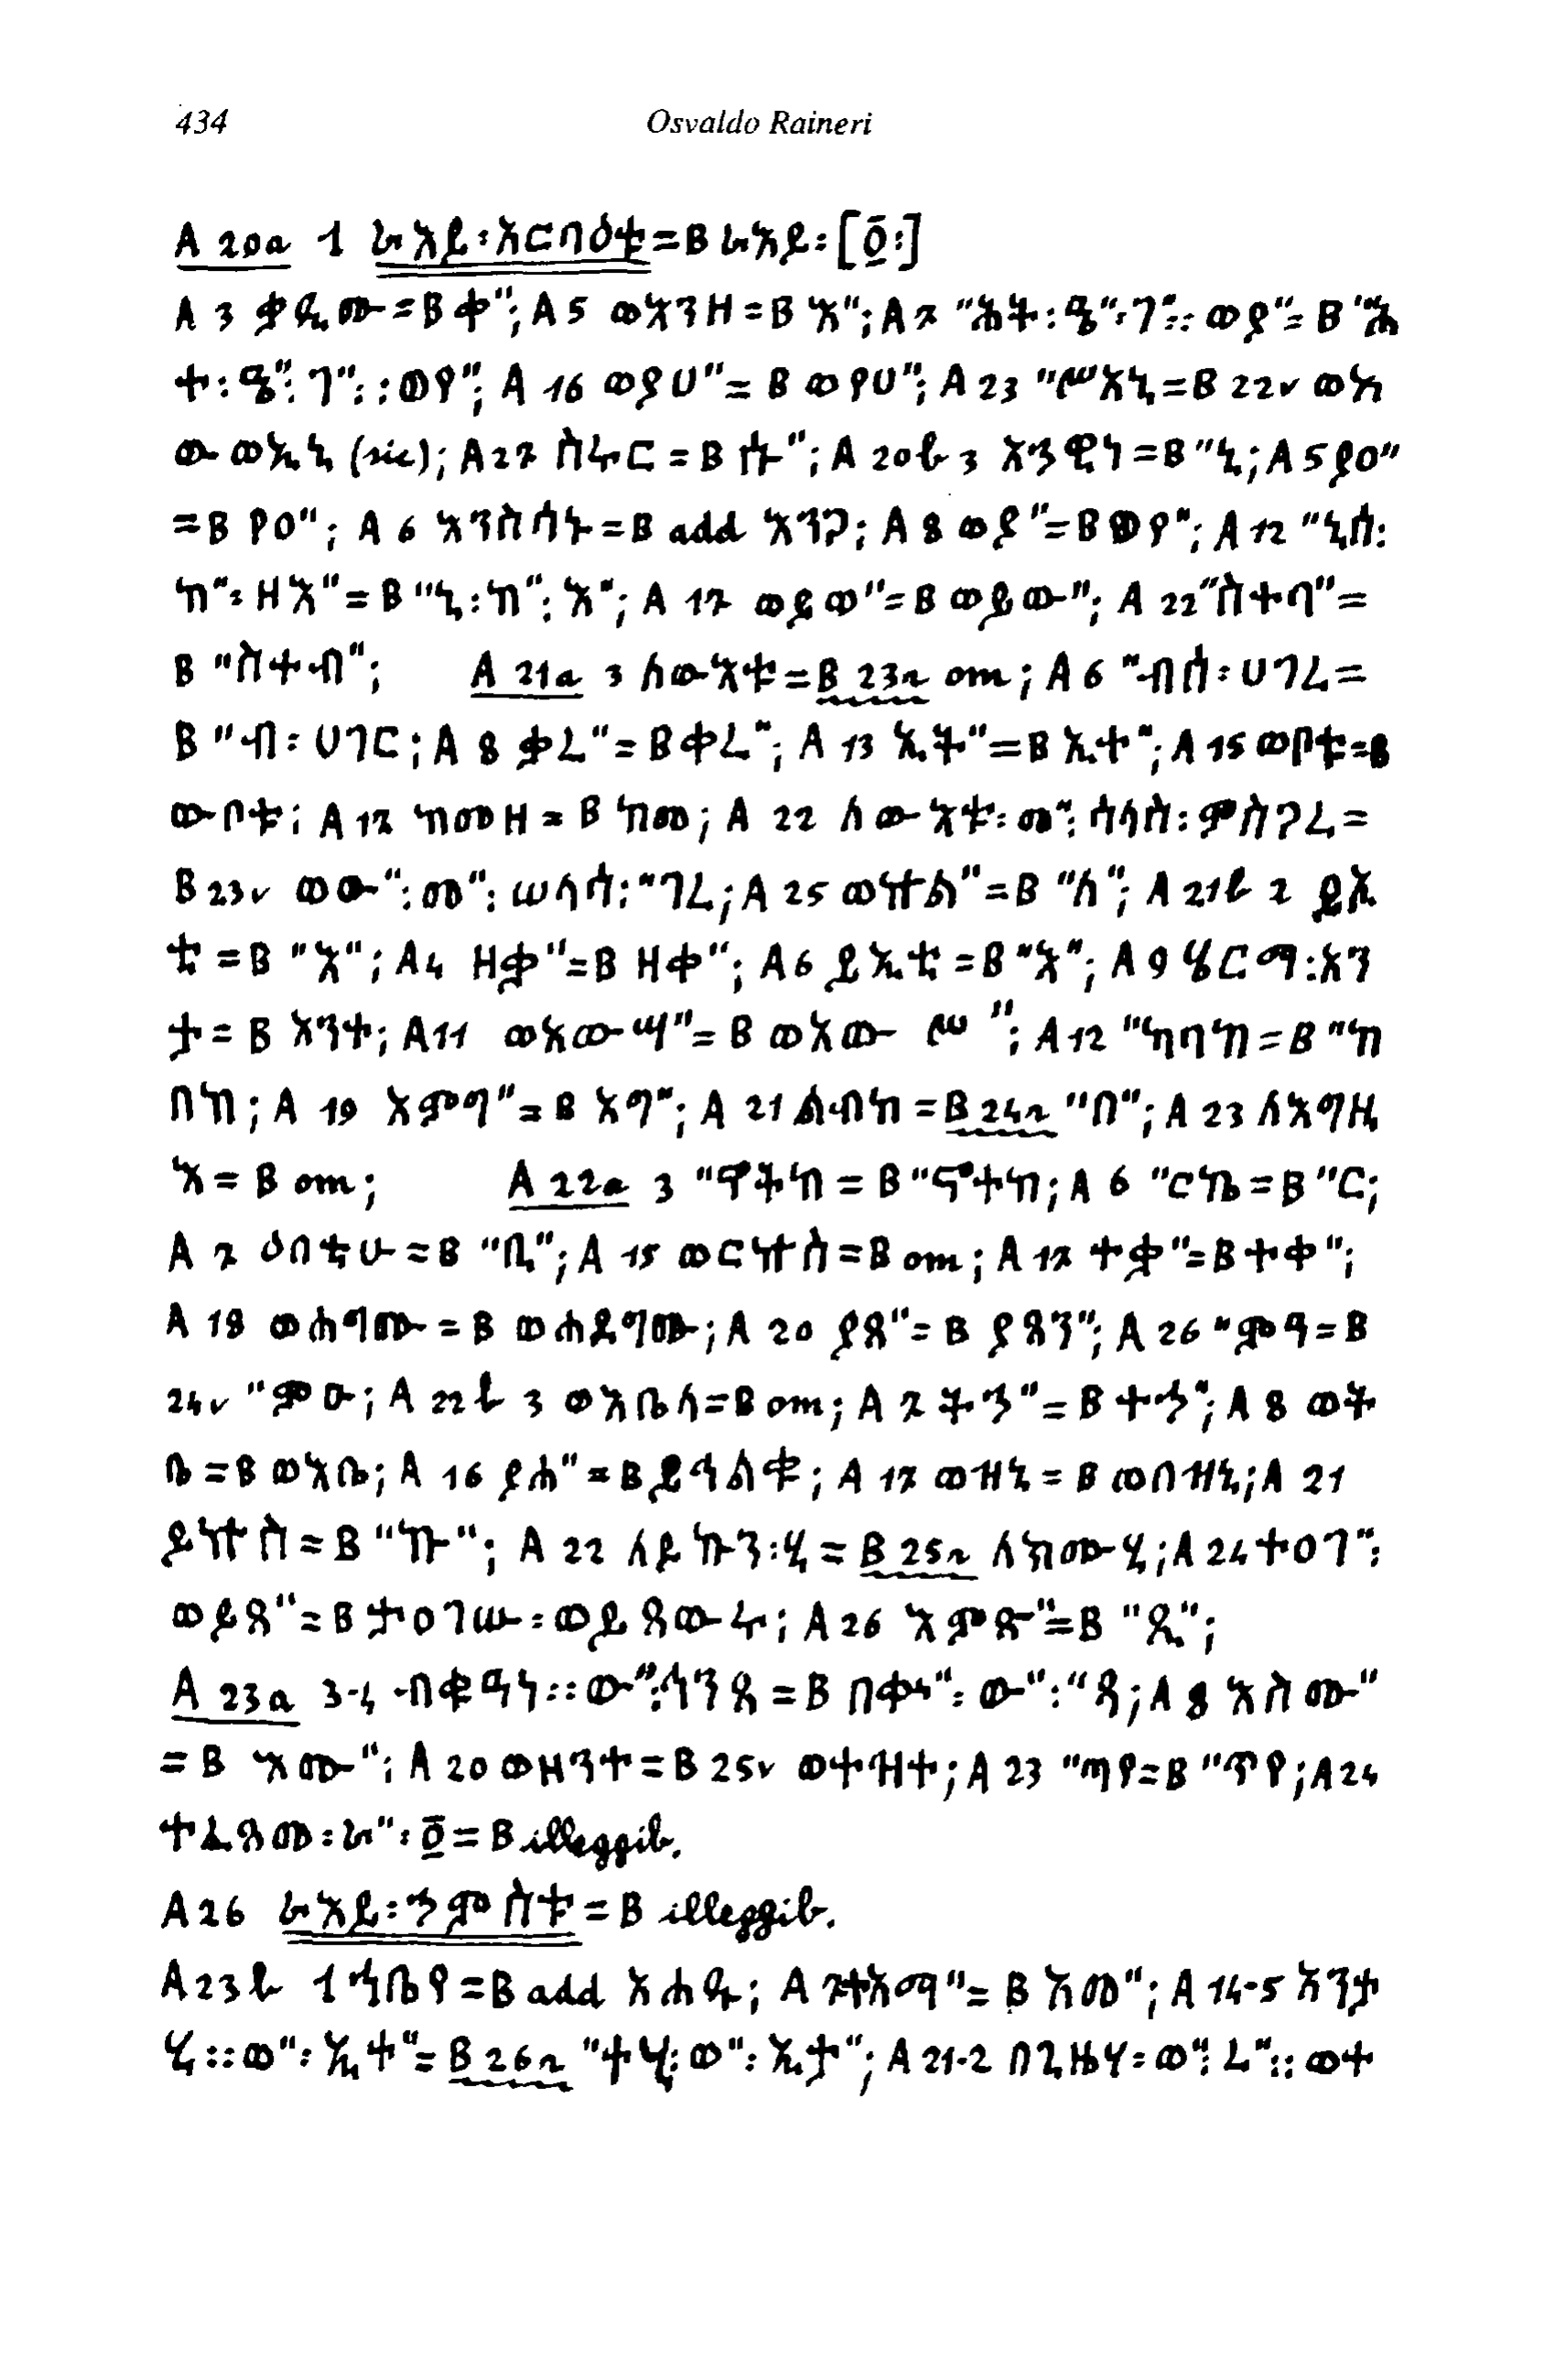 434 Osvaldo Raineri
A 20a 1 ራእይ፡አርባዕቱ=B ራእይ፡[፬፡]
A 3 ቃዲሙ=B ቀ"; A 5 ወእንዘ=B እ"; A 7 ወያ"= B
A 16 ወያሀ"= B ወየሀ"; A 23 "ሠእኒ=B 22v ወእ
ውወኢኒ (sic); A 27 ስፉር = B ሱ"; A 20b 3 =B "ኒ; A 5 ያዐ"
=B የዐ"; A 6 እንስሳት=B add እንጋ; A 8 ወያ"=B ወየ"; A 12 "ኒሰ፡
ከ"፡ዘእ"= B "ኒ፡ከ"፡እ"; A 17 ወይወ"= B ወይው"; A 22 "ስተባ"=
B "ስተብ"; A 21a 3 ለውእቱ=B 23r om; A 6 "ብሰ፡ሀገረ=
B "ብ፡ሀገር; A 8 ቃረ"= B ቀረ"; A 13 ኢት"= B ኢተ"; A 15 ወቦቱ=B
ውቦቱ; A 17 ከመዘ = B ከመ; A 22 ለውእቱ፡መ"፡ሳላስ፡ምስጋረ=
B 23v ወው"፡መ"፡ሠላሳ፡"ገረ; A 25 ወኵል"=B "ለ"; A 21b 2 ይእ
ቲ =B "እ"; A 4 ዘቃ"=B ዘቀ"; A 6 ይኢቲ =B "እ"; A 9 ሄርማ፡አን
ታ = B አንተ; A 11 ወአውሣ"= B ወአው ሠ"; A 12 "ካባከ = B "ከ
በከ; A 19 አምግ"= B አግ"; A 21 ልብከ =B 24r "በ"; A 23 ለእግዚ
እ = B om; A 22a 3 "ኖትከ = B "ኖተከ; A 6 "ርኬ=B "ር;
A 7 ዕበቲሁ=B "ቢ"; A 15 ወርኵስ=B om; A 17 ተቃ"=B ተቀ";
A 18 ወሐግሙ = B ወሐይግሙ; A 20 ያጸ"= B ያጸን"; A 26 "ምዓ=B
24v "ምዑ; A 22b 3 ወእቤለ=B om; A 7 ትኅ"= B ተኅ"; A 8 ወት
ቤ =B ወእቤ; A 16 ያሐ"=B ይዓልቁ; A 17 ወዝኒ = B ወበዝኒ; A 21
ይኵስ=B "ኩ"; A 22 ለይኩን፡ሂ = B 25r ለክሙሂ; A 24 ተዐገ"፡
ወይጸ"= B ታዐገሡ፡ወይጸውሩ; A 26 እምጽ"=B "ጺ";
A 23a 3-4 =B "ጻ; A 8 እስሙ"
= B እሙ"; A 20 ወዘንተ= B 25v ወተዝተ; A 23 "ጣየ=B "ጥየ; A 24
ተፈጸመ፡ራ"፡፬= B illeggib.
A 26 ራእይ፡ኅምስቱ= B illeggib.
A 23b 1 ኀቤየ=B add አሐዱ; A 7 = B እመ"; A 14-5 አንታ
ሂ፡፡ወ"፡ኢተ"= B 26r "ተሂ፡ወ"፡ኢታ"; A 21-2 በጊዜሃ፡ወ"፡ረ"፡፡ወተ